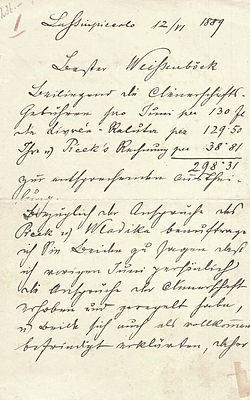 Lussinpiccolo 12/VI 1889
Bester Weissenböck
Beiliegend die Dienerschafts-
Gebühren pro Juni per 130 fl
die Livrée-Reluta per 129·50
Ihre u Peck's Rechnung per 38·81
298·31
zur entsprechenden Verthei-
lung.
Bezüglich der Ansprüche des
Peck u beauftrage
ich Sie Beiden zu sagen daß
ich vorigen Juni persönlich
die Ansprüche der Dienerschaft
erhoben und geregelt habe,
u Beide sich auch als vollkommen
befriedigt erklärten, daher